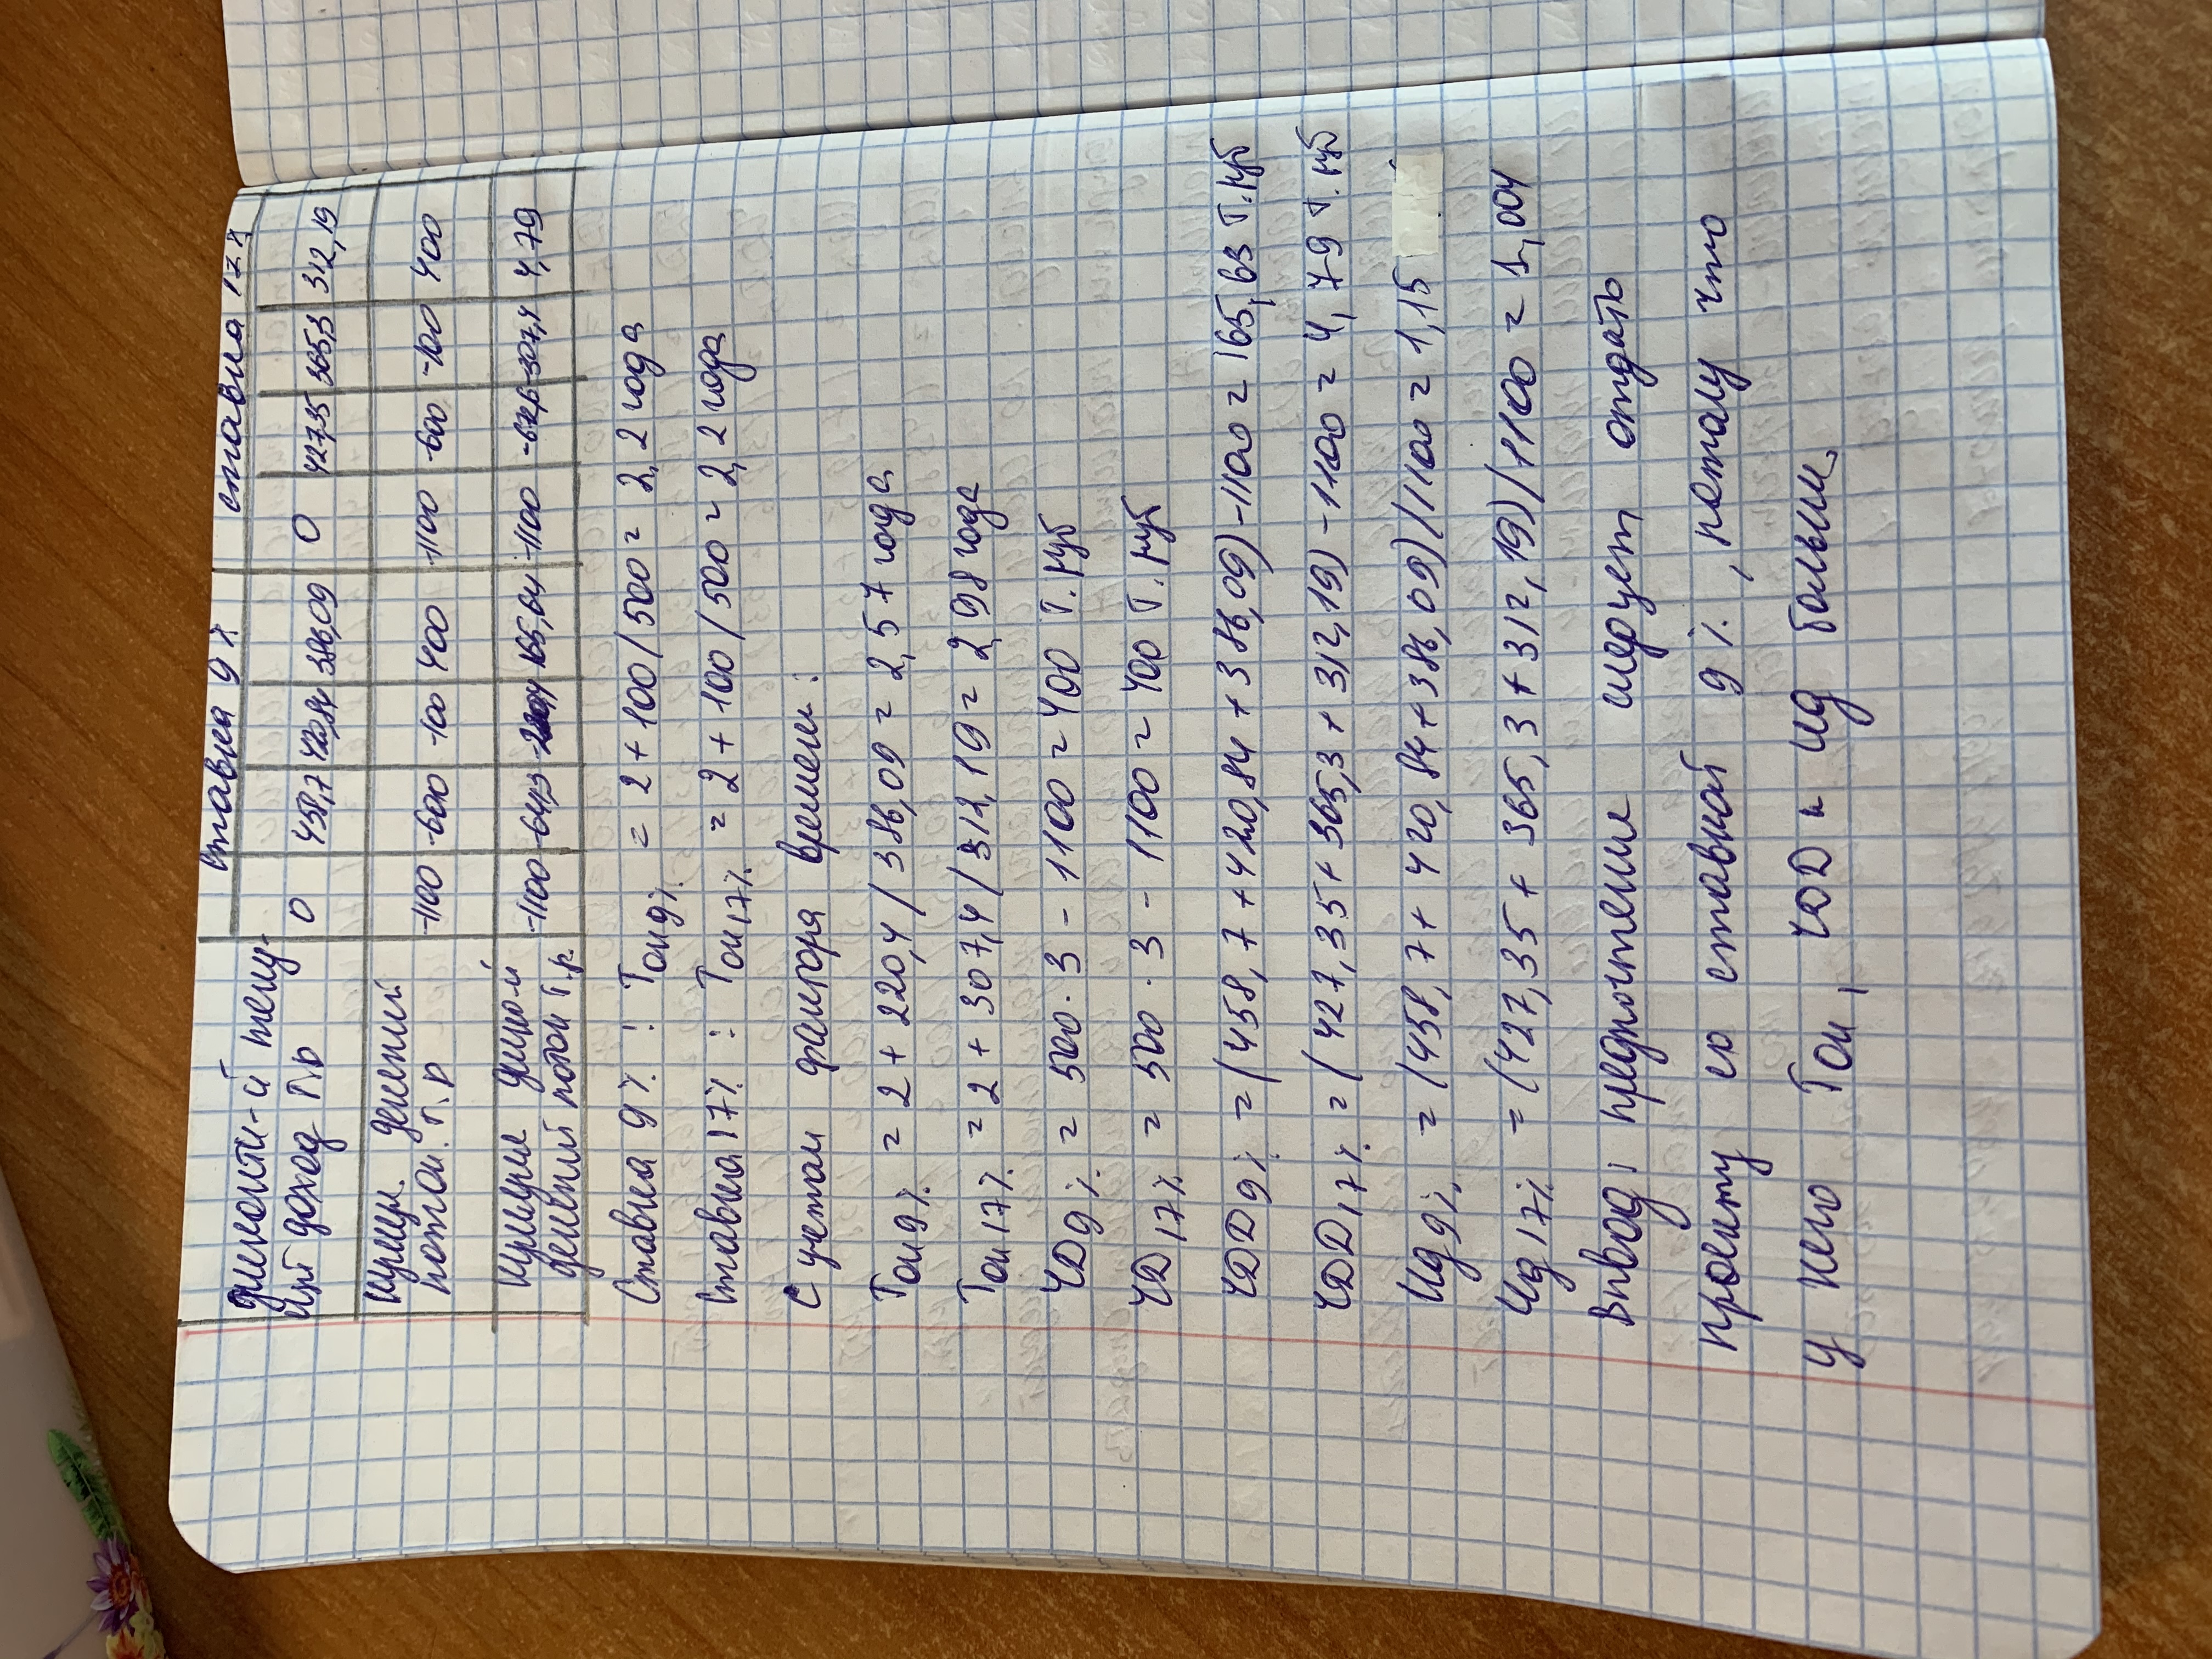 ставка 9% ставка 17%
дисконти-й теку-
щий доход т.р 0 458,7 420,84 386,09 0 427,35 365,3 312,19
кумул. денежный
поток. т.р -1100 -600 -100 400 -1100 -600 -100 400
кумулят диско-й
денежный поток т.р. -1100 -641,3 -220,4 165,64 -1100 -672,6 -307,4 4,79
Ставка 9% : Ток9% = 2 + 100/500 = 2,2 года
Ставка 17% : Ток17% = 2 + 100/500 = 2,2 года
С учетом фактора времени:
Ток9% = 2 + 220,4/386,09 = 2,57 года
Ток17% = 2 + 307,4/312,19 = 2,98 года
ЧД9% = 500·3 - 1100 = 400 т.руб
ЧД17% = 500·3 - 1100 = 400 т.руб
ЧДД9% = (458,7+420,84+386,09)-1100 = 165,63 т.руб
ЧДД17% = (427,35+365,3+312,19)-1100 = 4,79 т.руб
Ид9% = (458,7+420,84+386,09)/1100 = 1,15
Ид17% = (427,35+365,3+312,19)/1100 = 1,004
Вывод: предпочтение следует отдать
проекту со ставкой 9%, потому что
у него Ток, ЧДД и ИД больше